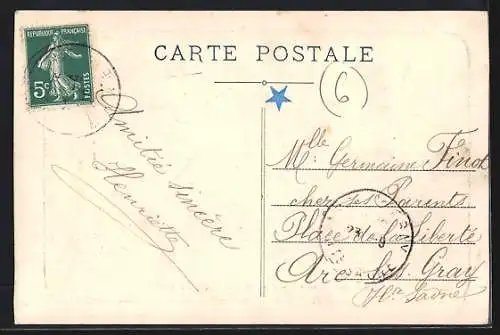 RÉPUBLIQUE FRANÇAISE
5c
POSTES
CARTE POSTALE
6
Amitié sincère
Henriette
Mlle Germaine Finot
chez ses Parents
Place de la Liberté
Arc-les-Gray
Hte Saône